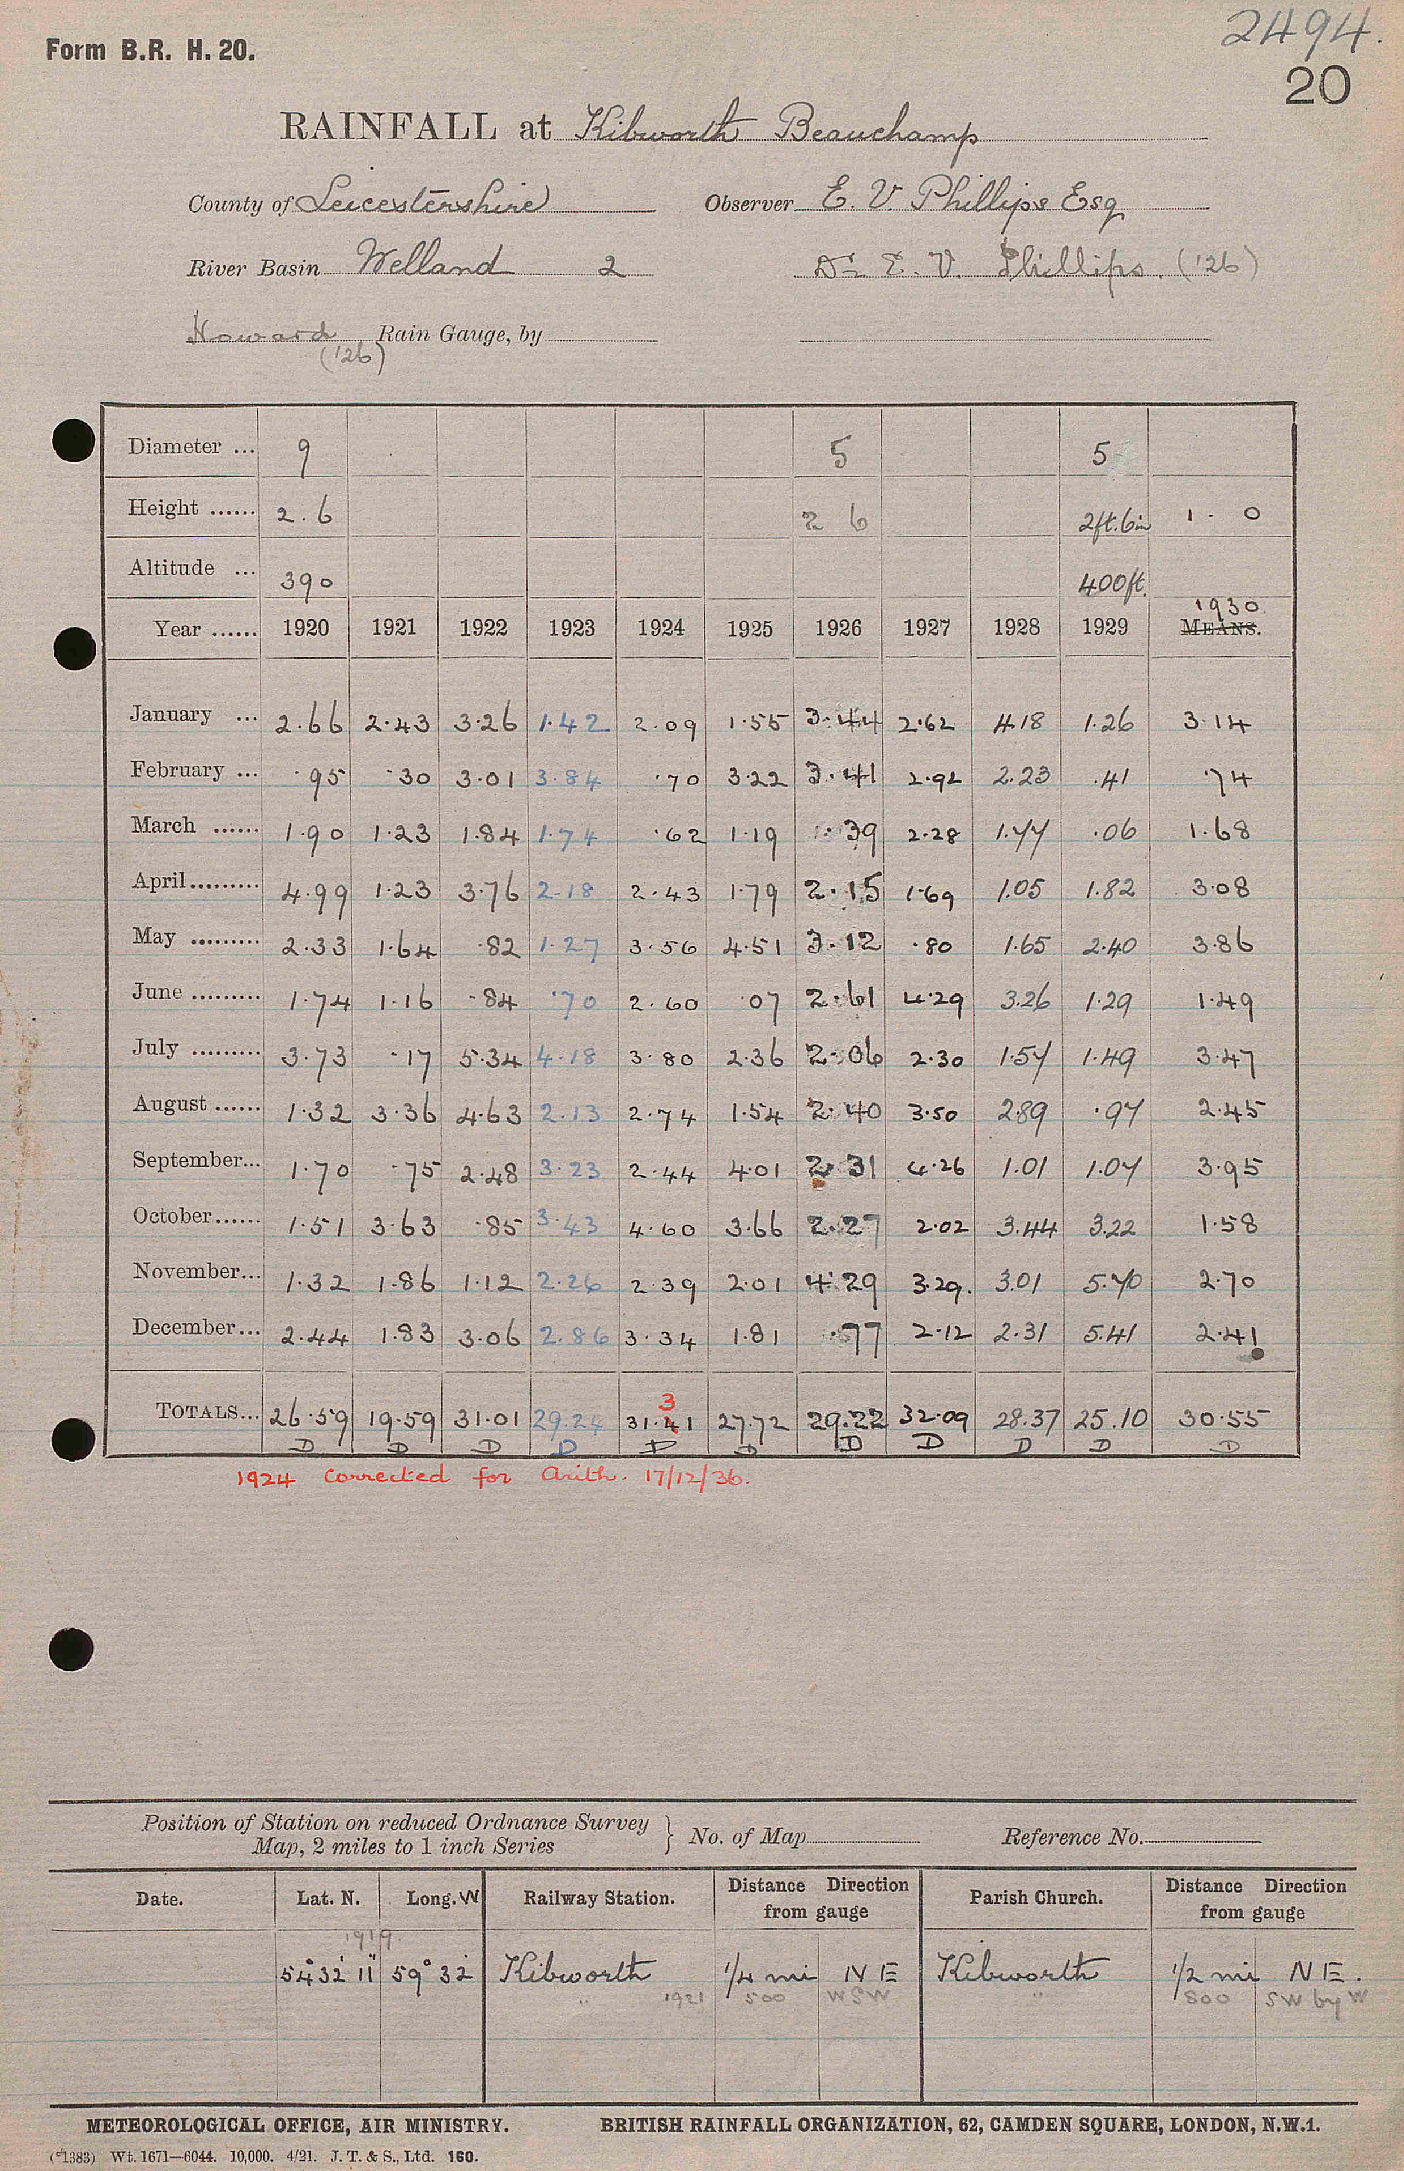 2494.
Form B.R. H. 20.
20
RAINFALL at Kibworth Beauchamp
County of Leicestershire Observer E. V. Phillips Esq
River Basin Welland 2 Dr E. V. Phillips. ('26)
Howard Rain Gauge, by
('26)
Diameter ... 9 5 5
Height ...... 2.6 2 6 2ft.6in 1 - 0
Altitude ... 390 400ft.
1930
Year ...... 1920 1921 1922 1923 1924 1925 1926 1927 1928 1929 MEANS.
January ... 2.66 2.43 3.26 1.42 2.09 1.55 3.44 2.62 4.18 1.26 3.14
February ... .95 .30 3.01 3.84 .70 3.22 3.41 2.92 2.23 .41 .74
March ...... 1.90 1.23 1.84 1.74 .62 1.19 .39 2.28 1.77 .06 1.68
April......... 4.99 1.23 3.76 2.18 2.43 1.79 2.15 1.69 1.05 1.82 3.08
May ......... 2.33 1.64 .82 1.27 3.56 4.51 3.12 .80 1.65 2.40 3.86
June ......... 1.74 1.16 .84 .70 2.60 .07 2.61 4.29 3.26 1.29 1.49
July ......... 3.73 .17 5.34 4.18 3.80 2.36 2.06 2.30 1.57 1.49 3.47
August ...... 1.32 3.36 4.63 2.13 2.74 1.54 2.40 3.50 2.89 .97 2.45
September... 1.70 .75 2.48 3.23 2.44 4.01 2.31 4.26 1.01 1.07 3.95
October...... 1.51 3.63 .85 3.43 4.60 3.66 2.27 2.02 3.44 3.22 1.58
November... 1.32 1.86 1.12 2.26 2.39 2.01 4.29 3.29. 3.01 5.70 2.70
December... 2.44 1.83 3.06 2.86 3.34 1.81 .77 2.12 2.31 5.41 2.41
3
TOTALS... 26.59 19.59 31.01 29.24 31.41 27.72 29.22 32.09 28.37 25.10 30.55
D D D D D D D D D D D
1924 corrected for arith. 17/12/36.
Position of Station on reduced Ordnance Survey
Map, 2 miles to 1 inch Series } No. of Map Reference No.
Date. Lat. N. Long. W Railway Station. Distance Direction from gauge Parish Church. Distance Direction from gauge
1919
54° 32' 11" 59° 32' Kibworth 1/4 mi N E Kibworth 1/2 mi N E.
" 1921 500 WSW " 800 SW by W
METEOROLOGICAL OFFICE, AIR MINISTRY. BRITISH RAINFALL ORGANIZATION, 62, CAMDEN SQUARE, LONDON, N.W.1.
(*1383) Wt. 1671—6044. 10,000. 4/21. J. T. & S., Ltd. 160.